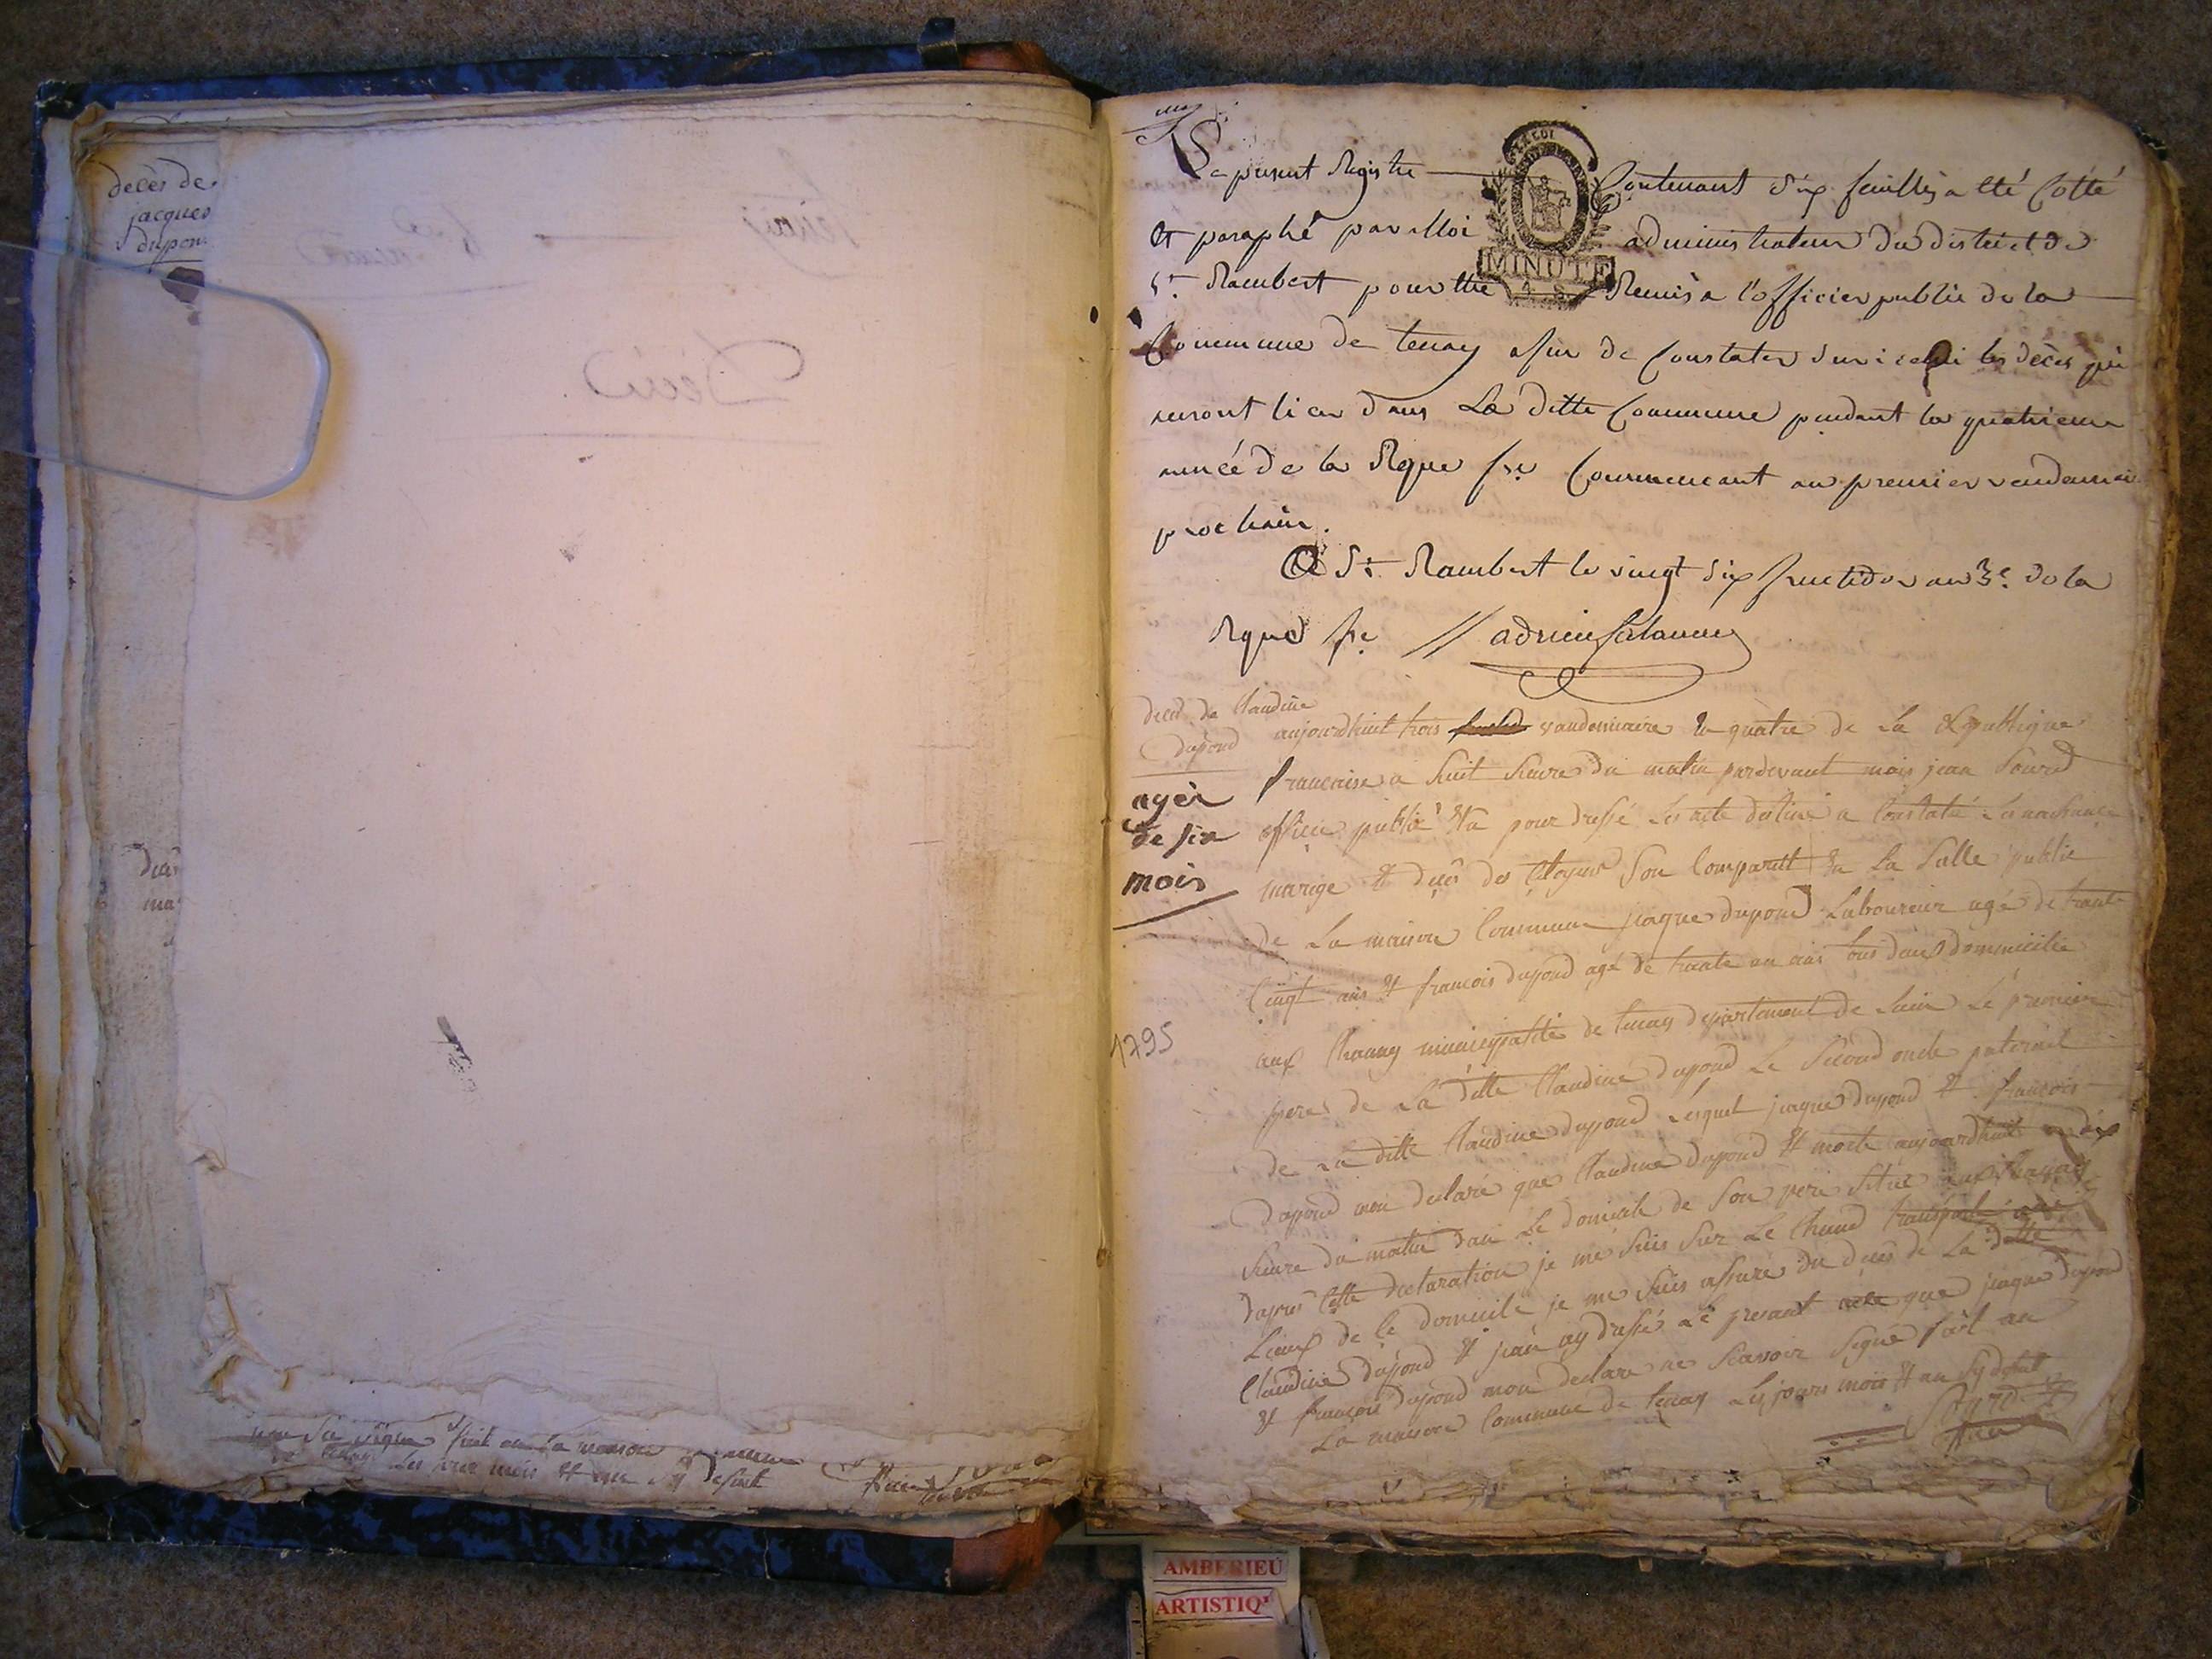 decès de
jacques
dupon
Décès
Le present Registre Contenant dix feuillés a été Cotté
et paraphé par Moi administrateur du district de
St. Rambert pour être Remis a l'officier public de la
Commune de tenay afin de Constater sur icelui les décès qui
auront lieu dans La ditte Commune pendant la quatrieme
année de la Rque fse Commencant au premier vendemiai
prochain.
A St. Rambert le vingt six fructidor an 3e. de la
Rque fse
LA LOI
MINUTE
4 S
deces de Claudine
dupond
ageè
de six
mois
1795
aujourdhuit trois vandemiaire en quatre de La Republique
francaise a huit heure du matin pardevant mois jean
officie public Elu pour dressé Les acte destiné a Constaté Les naissance
mariage et deces des Citoyens Son Comparut En La Salle public
de La maison Commune jaque dupond Laboureur agé de trante
Cinqt ans et francois dupond agé de trante un ans tous deux dommicilie
aux Chanay municipalité de tenay departement de Lain Le premier
pere de La ditte Claudine dupond Le Second oncle paternel
de La ditte Claudine dupond Lesquel jaque dupond et francois
dupond mon declaré que Claudine dupond et morte aujourdhuit a dix
heure du matin dan Le domicile de Son pere Situé aux Chanay
dapres Cette declaration je me Suis Sur Le Chand transporté au
Lieux de Ce domicile je me Suis assuré du deces de La ditte
Claudine dupond et jean ay dressé Le presant acte que jaque dupond
et francois dupond mon declare ne Scavoir Signe fait en
La maison Commune de tenay Les jours mois et an Sy dessut
non Su signe fait en la maison
de tenay Les jour mois et an Sy desut
AMBERIEU
ARTISTIQ